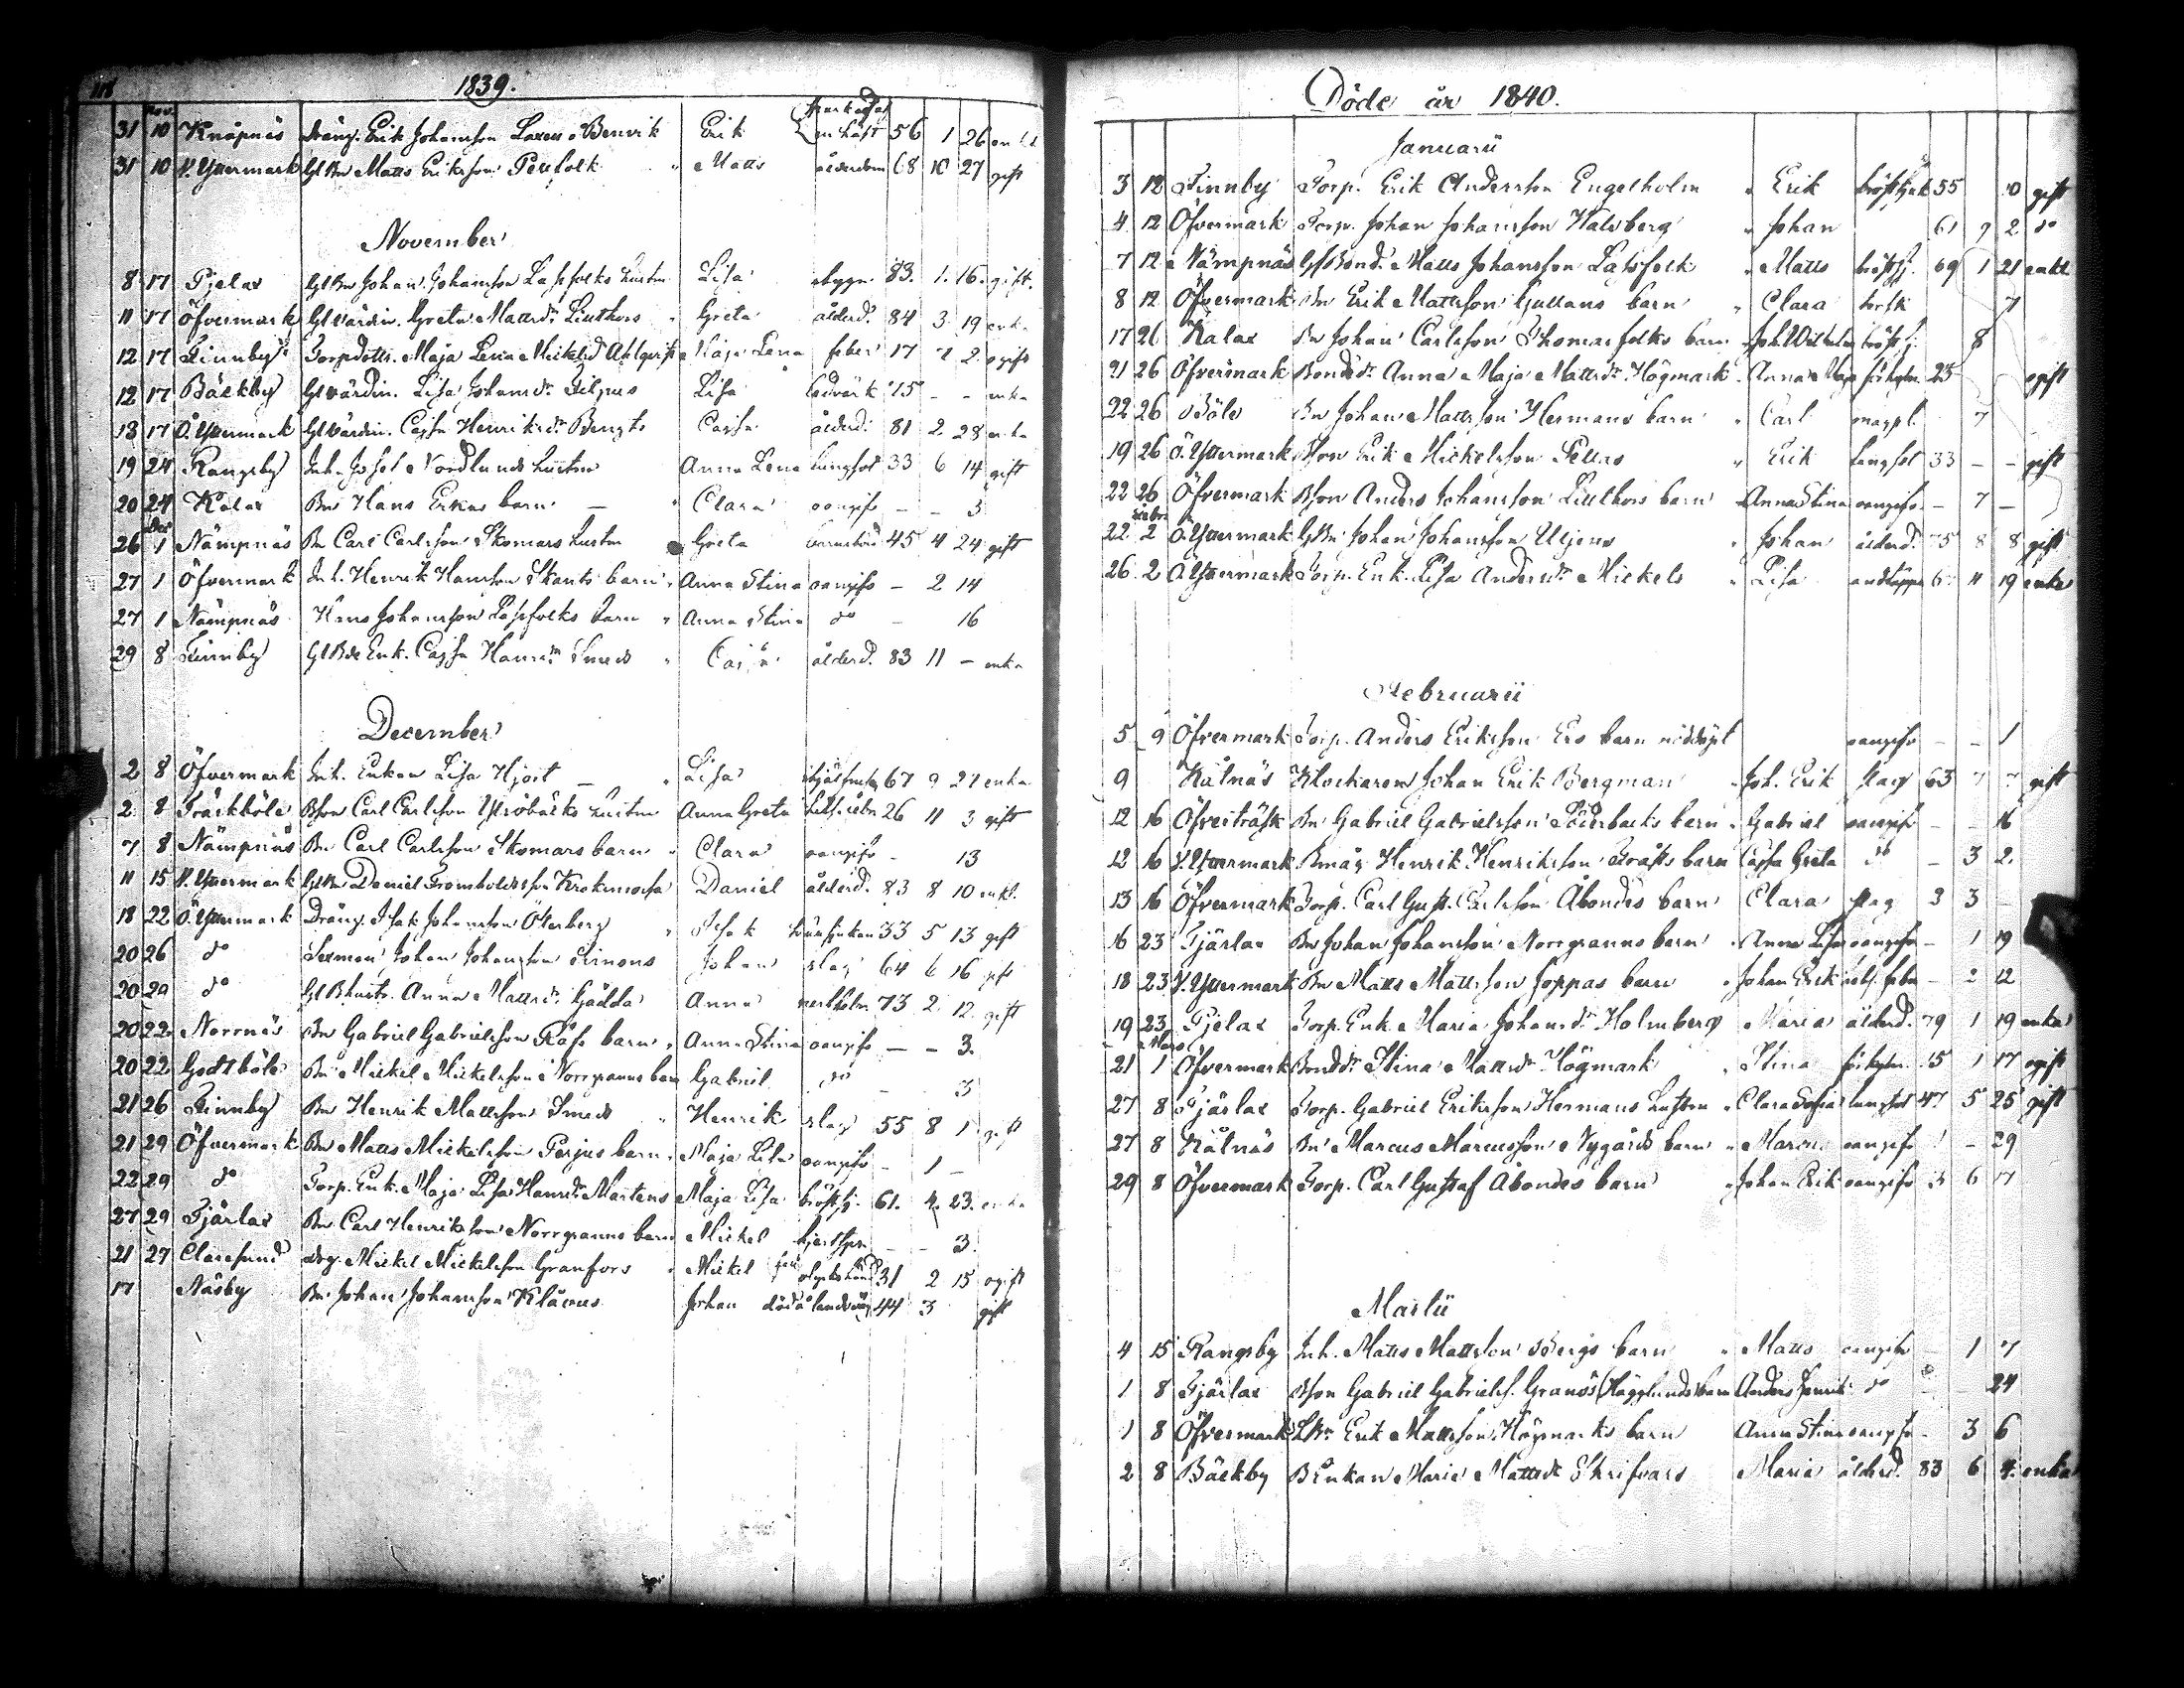 118
1839.
31 10 Knåpnäs Dräng. Erik Johansson Laxens Benvik Erik en häst 56 1 26
31 10 Y. Yttermark Gl Bn Matts Eriksson Perfolk " Matts ålderdom 68 10 27 gift
November
8 17 Pjelax Gl Bn Johan Johansson Lassfolks hustru Lisa 83. 1. 16. gift.
11 17 Öfvermark Gl värdin. Greta Mattsdr Liuthors " Greta ålderd. 84 3 19 enka
12 17 Finnby Torpdottr. Maja Lena Mickelsd Ahlqvist Maja Lena feber 17 2 ogift
12 17 Bäckby Gl värdin. Lisa Johansdr Filpus Lisa 75 - - enka
13 17 Ö. Yttermark Gl värdin. Cajsa Henriksdr Bengts Cajsa ålderd. 81 2 28 enka
19 24 Rangsby Inh. Josef Nordlunds hustru Anna Lena lungsot 33 6 14 gift
20 24 Kalax Bn Hans Erkus barn — Clara oangifv - - 3
Dec
26 1 Nämpnäs Bn Carl Carlsson Skomars hustru Greta barnsbörd 45 4 24 gift
27 1 Öfvermark Inh. Henrik Hansson Skants barn Anna Stina oangifv - 2 14
27 1 Nämpnäs Hans Johansson Lassfolks barn " Anna Stina do - 16
29 8 Finnby Gl Bde Enk. Cajsa Hansdr Smeds " Cajsa ålderd. 83 11 - enka
December
2 8 Öfvermark Inh. Enkan Lisa Hjort — " Lisa 67 9 21 enka
2 8 Träskböle Bson Carl Carlsson Ytterbäcks hustru Anna Greta 26 11 3 gift
7 8 Nämpnäs Bn Carl Carlsson Skomars barn " Clara oangifv - 13
11 15 Y. Yttermark Gl Bn Daniel Krokmossa Daniel ålderd. 83 8 10 enkl.
18 22 Ö. Yttermark Dräng. Isak Johansson Österberg " Isak 33 5 13 gift
20 26 do Sexman Johan Johansson Simons Johan slag 64 6 16 gift
20 29 do Gl Bhustr. Anna Mattsdr Gädda Anna 73 2 12. gift
20 22 Norrnäs Bn Gabriel Gabrielsson Råfs barn " Anna Stina oangifv - - 3.
20 22 Gottböle Bn Mickel Mickelsson Norrgranns barn Gabriel do - 3
21 26 Finnby Bn Henrik Mattsson Smeds " Henrik slag 55 8 1 gift
21 29 Öfvermark Bn Matts Mickelsson Perjus barn " Maja Lisa oangifv - 1 -
22 29 do Torp. Enk. Maja Lisa Hansdr Mårtens Maja Lisa bröstsj. 61. 4. 23. enka
27 29 Tjärlax Bn Carl Henriksson Norrgranns barn Mickel - - 3.
21 27 Claresund drg. Mickel Mickelsson Granfors " Mickel olyckshänd. 31 2 15 ogift
17 Näsby Bn Johan Johansson Klåvus Johan död å landsväg 44 3 gift
Döde år 1840.
Januarii
3 12 Finnby Torp. Erik Andersson Engelholm " Erik bröstsjuk 55 10 gift
4 12 Öfvermark Torp. Johan Johansson Halsberg " Johan 61 9 2 do
7 12 Nämpnäs Gl Bond. Matts Johansson Lassfolk " Matts bröstsj. 69 1 21 enkl.
8 12 Öfvermark Bn Erik Mattsson Gullans barn " Clara torsk 7
17 26 Kalax Bn Johan Carlsson Thomasfolks barn Joh. Wilhelm bröstsj. 8
21 26 Öfvermark Bondedr Anna Maja Mattsdr Högmark Anna Maja 25 ogift
22 26 Böle Bn Johan Mattsson Hermans barn " Carl - 7
19 26 Ö. Yttermark Bson Erik Mickelsson Pellas " Erik lungsot 33 - - gift
22 26 Öfvermark Bson Anders Johansson Liuthors barn Anna Stina oangifv - 7 -
22 2 Ö. Yttermark Gl Bn Johan Johansson Uljens " Johan ålderd. 75 8 8 gift
26 2 Ö. Yttermark Torp. Enk. Lisa Andersdr Mickels " Lisa andtäppa 6 11 19 enka
Februarii
5 9 Öfvermark Torp. Anders Eriksson Ers barn nöddöpt oangifv - - 1
9 Kålnäs Klockaren Johan Erik Bergman " Joh. Erik slag 63 7 7 gift
12 16 Öfverträsk Bn Gabriel Gabrielsson Söderbacks barn " Gabriel oangifv - - 16
12 16 Y. Yttermark Bmåg Henrik Henriksson Gräfts barn Cajsa Greta do - 3 2.
13 16 Öfvermark Torp. Carl Gust. Carlsson Åbondes barn Clara slag 3 3 -
16 23 Tjärlax Bn Johan Johansson Norrgranns barn " Anna Lisa oangifv - 1 19
18 23 Y. Yttermark Bn Matts Mattsson Joppas barn " Johan Erik - 2 12
19 23 Pjelax Torp. Enk. Maria Johansdr Holmberg Maria ålderd. 79 1 19 enka
Mars
21 1 Öfvermark Bondedr Stina Mattsdr Högmark " Stina 15 1 17 ogift
27 8 Tjärlax Torp. Gabriel Eriksson Hermans hustru " Clara Sofia lungsot 47 5 25 gift
27 8 Kålnäs Bn Marcus Marcusson Nygårds barn " Marcus oangifv - 29
29 8 Öfvermark Torp. Carl Gustaf Åbondes barn " Johan Erik oangifv 6 17
Martii
4 15 Rangsby Inh. Matts Mattsson Bergs barn " Matts oangifv - 1 7
1 8 Tjärlax Bson Gabriel Gabrielss. Granös (Hägglunds) barn Anders Henrik do 24
1 8 Öfvermark Erik Mattsson Högmarks barn Anna Stina oangifv - 3 6
2 8 Bäckby B Enkan Maria Mattsdr Skrifvars Maria ålderd. 83 6 4. enka